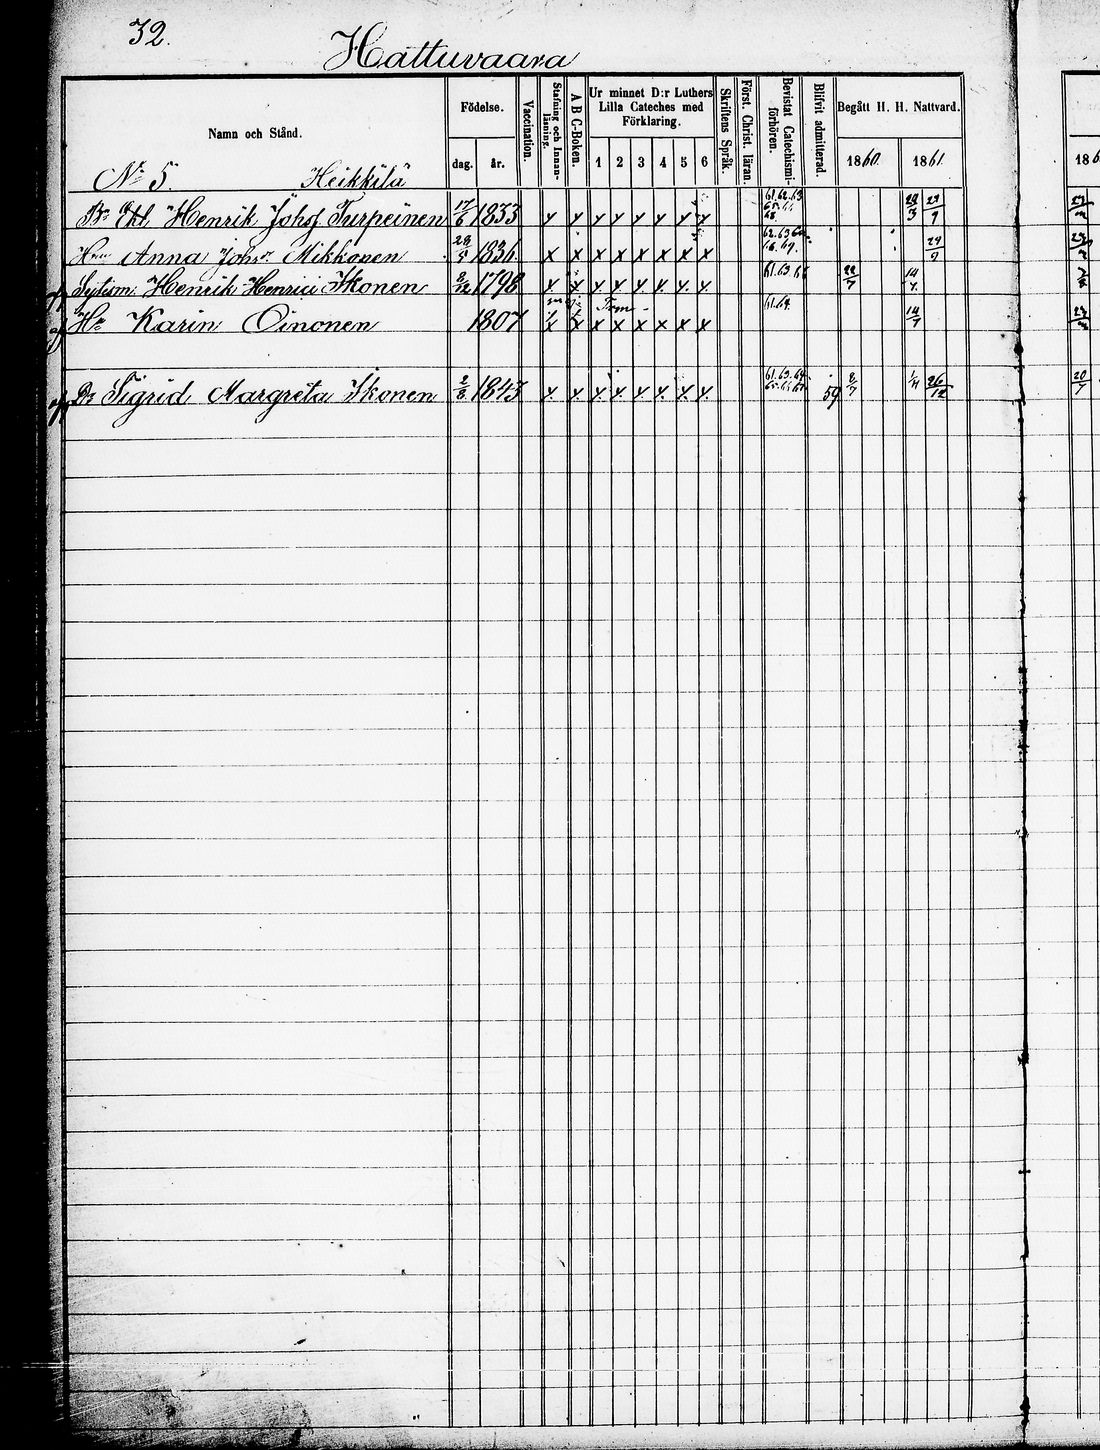 32.
Hattuvaara
Namn och Stånd.
Födelse.
dag. år.
Vaccination.
Stafning och Innanläsning.
A B C-Boken.
Ur minnet D:r Luthers Lilla Cateches med Förklaring.
1 2 3 4 5 6
Skriftens Språk.
Först. Christ. läran.
Bevistat Catechismiförhören.
Blifvit admitterad.
Begått H. H. Nattvard.
1860. 1861.
No 5. Heikkilä
Henrik Johsf Turpeinen 17/6 1833 x x x x x x x x 61.62.63 29/9
Hru Anna Johsr Mikkonen 1836 x x x x x x x x 29/9
Henrik Henrici Ikonen 2/12 1798 x x x x x x x x 22/7
Hr Karin Oinonen 1807 x x x x x x x x 61.64. 14/7
Dr Sigrid Margreta Ikonen 2/8 1843 x x x x x x x x 61.63.64 59 2/7 26/12 20/7